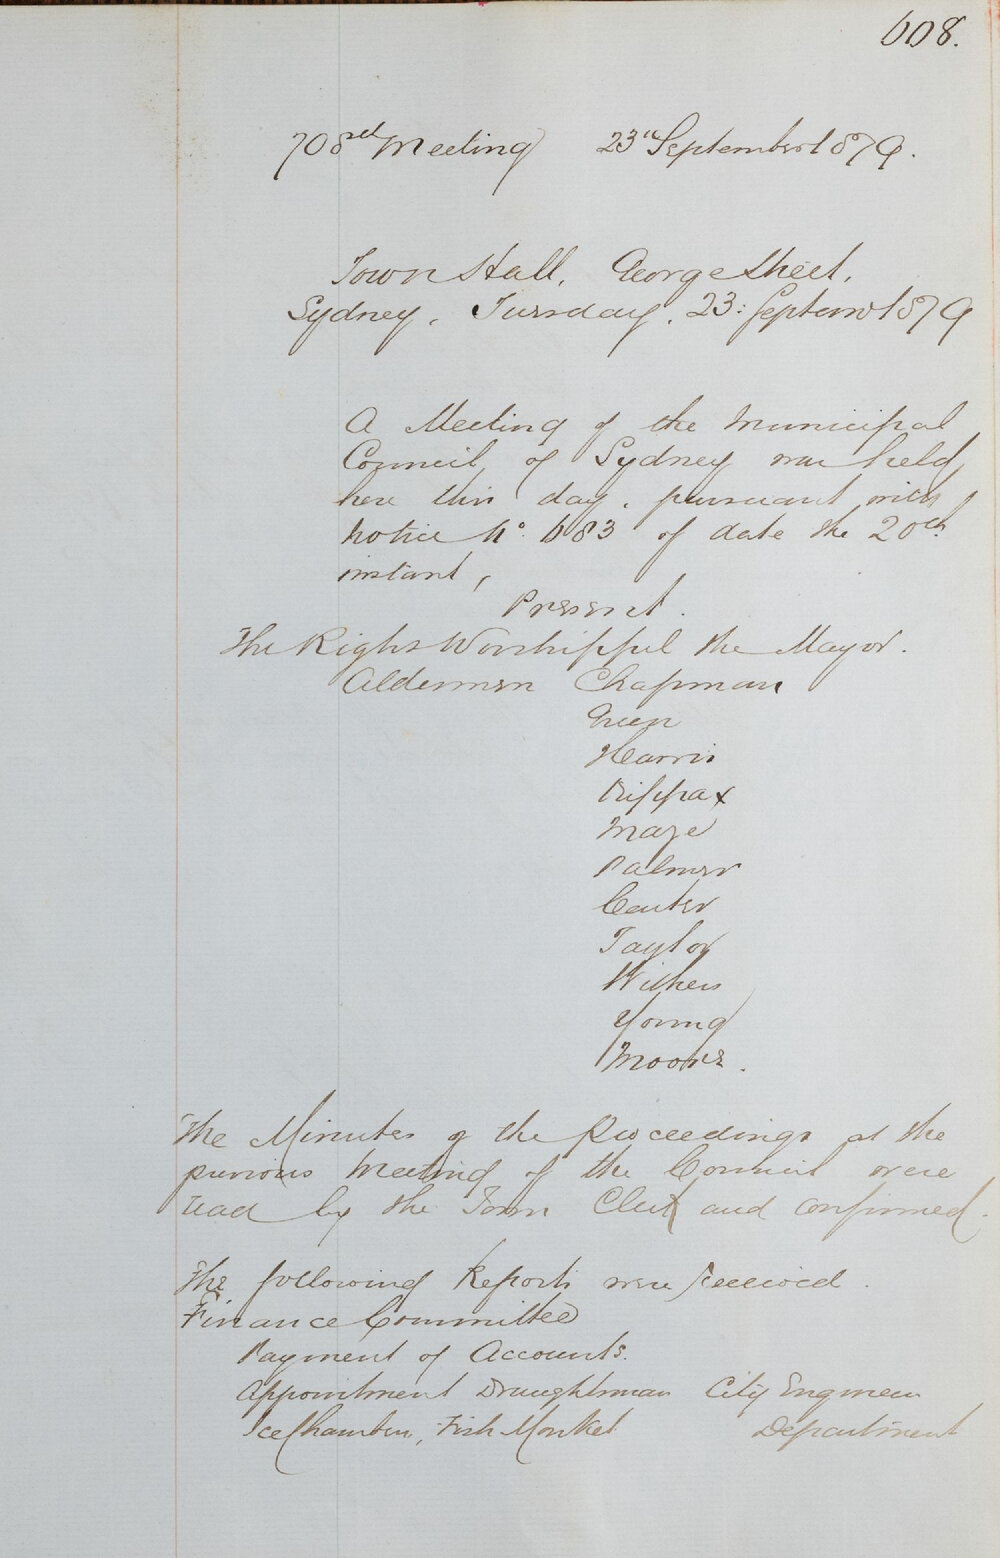 608.
708rd Meeting 23rd September 1879.
Town Hall, George Street,
Sydney, Tuesday, 23: Septemr 1879
A Meeting of the Municipal
Council of Sydney was held
here this day, pursuant with
notice No. 683 of date the 20th
instant,
Present.
The Right Worshipful the Mayor.
Aldermen Chapman
Green
Harris
Kippax
Maze
Palmer
Carter
Taylor
Withers
Young
Moore.
The Minutes of the Proceedings at the
previous Meeting of the Council were
read by the Town Clerk and confirmed.
The following Reports were received.
Finance Committee
Payment of Accounts.
Appointment Draughtsman City Engineer
Ice Chamber, Fish Market Department